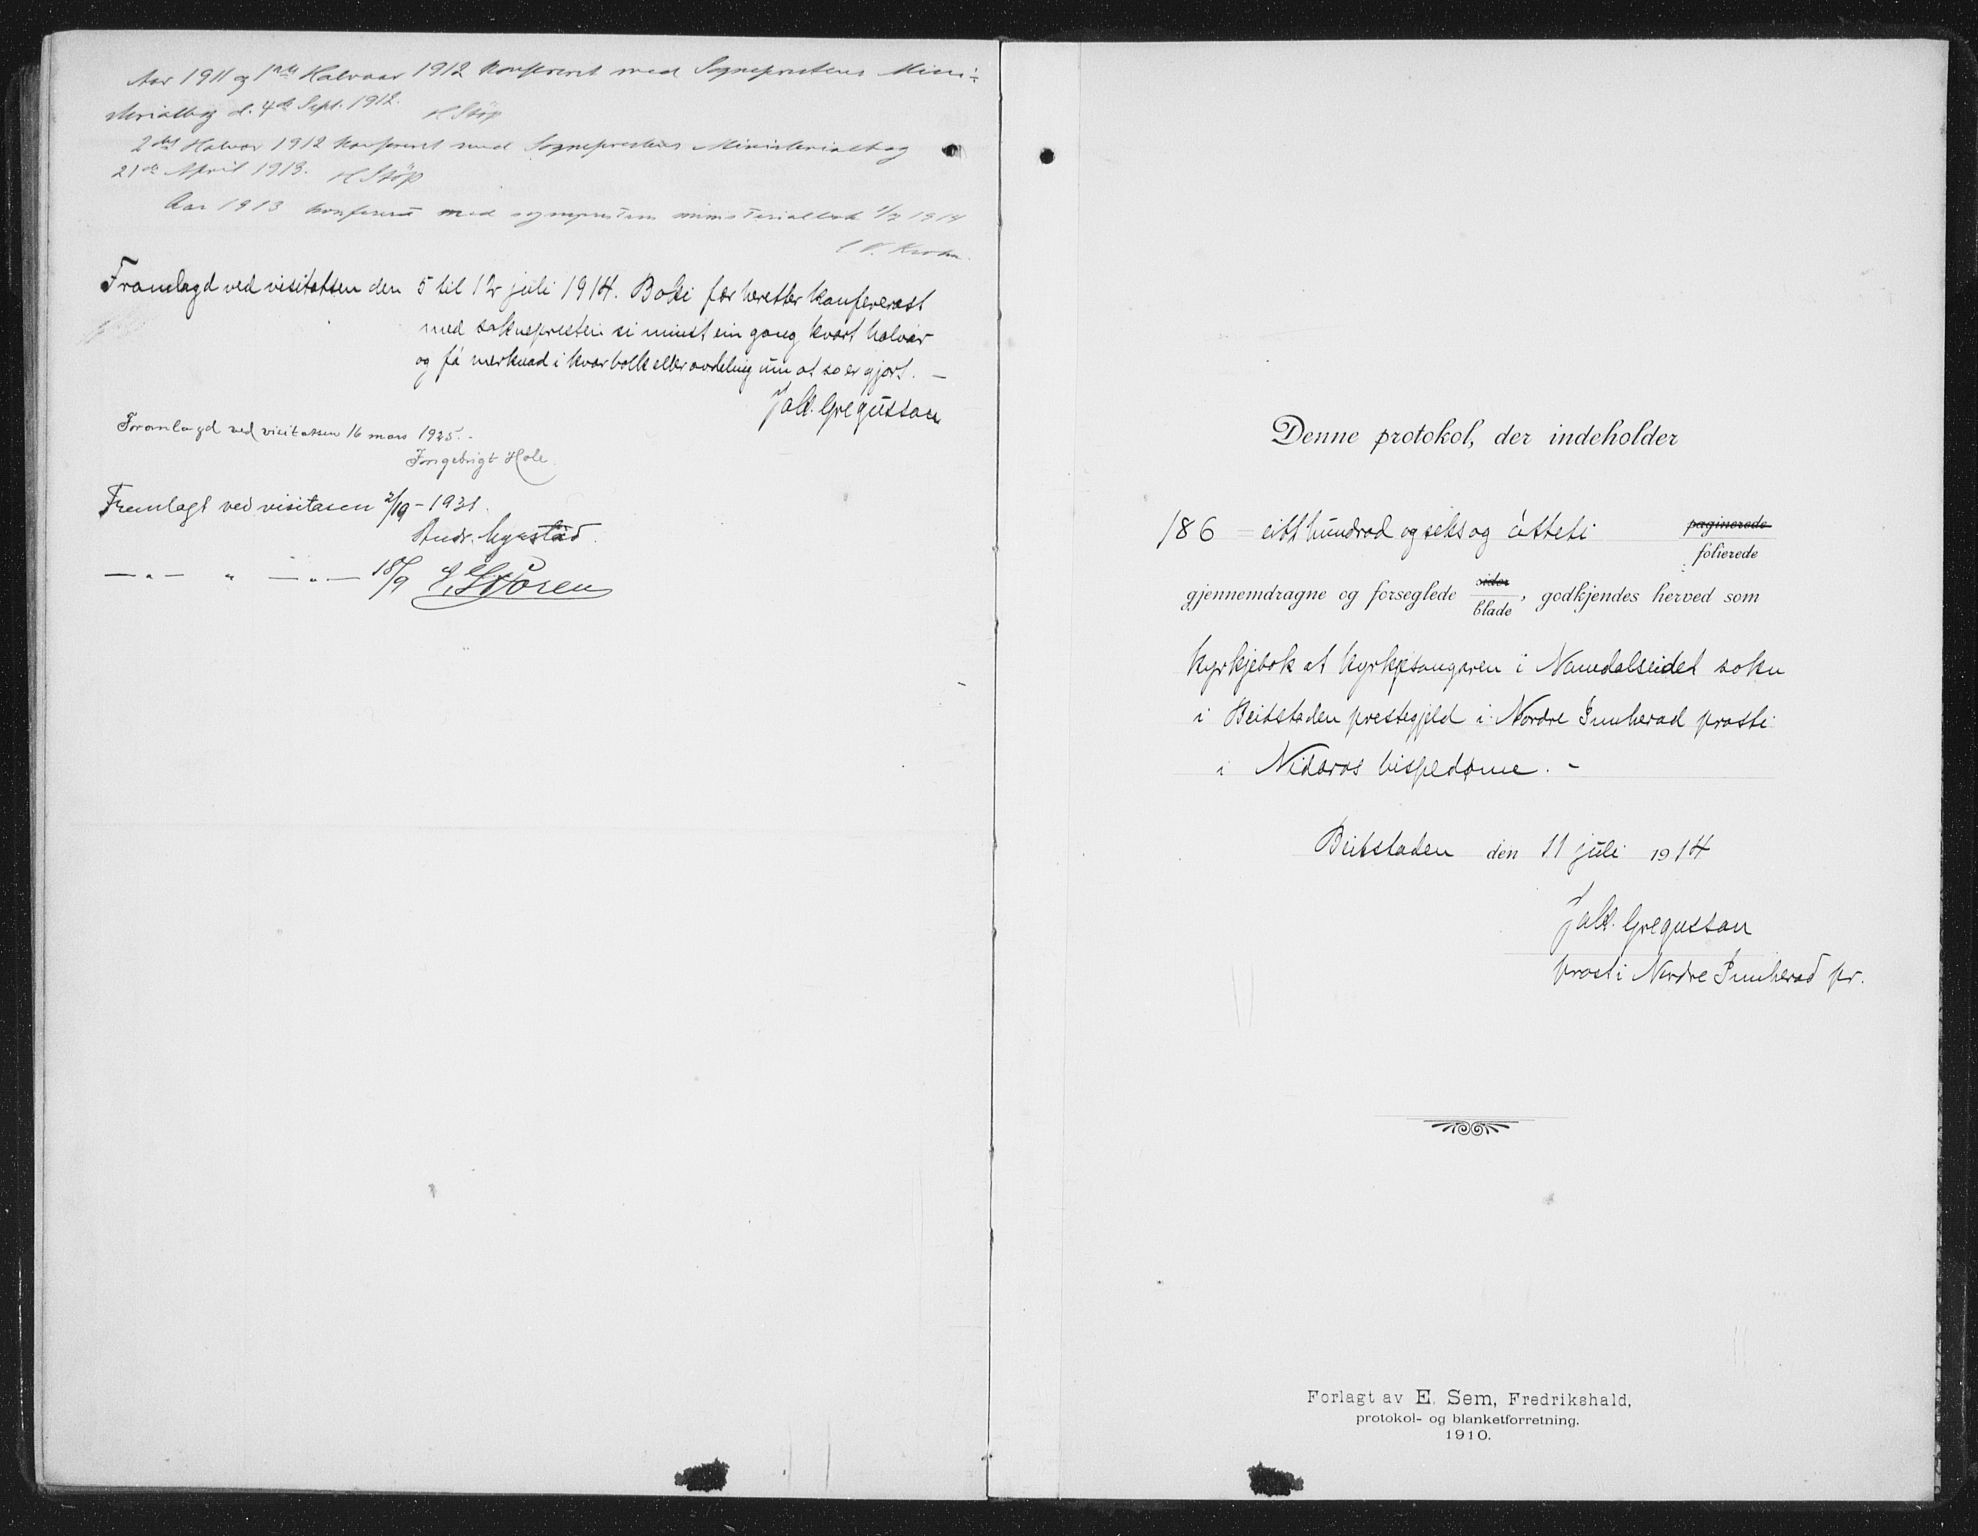 Aar 1911 og 1ste Halvaar 1912 konfereret med Sogneprestens Mini-
sterialbog d. 4de Sept. 1912. H Støp
2det Halvår 1912 konfereret med Sogneprestens Ministerialbog
21de April 1913. H Støp
Aar 1913 konferert med sogneprestens ministerialbok 1914
Krohn.
Framlagd ved visitatsen den 5 til 12 juli 1914. Boki fær heretter konfererast
med soknepresten si minst ein gong kvart halvår
og få merknad i kvar bolk eller avdeling um at so er gjort. —
Jak. Gregusson
Framlagd ved visitatsen 16 mars 1925.
Ingebrigt Hole.
Fremlagt ved visitasen 2/10 - 1931.
Andr.
— „ — „ — „ — 18/9 Støren
Denne protokol, der indeholder
186 = eitt hundrad og seks og åtteti paginerede
folierede
gjennemdragne og forseglede sider
blade, godkjendes herved som
kyrkjebok åt kyrkjesongaren i Namdalseidet sokn
i Beitstaden prestegjeld i Nordre Innherad prosti
i Nidaros bispedøme. -
Beitstaden den 11 juli 1914
Jak. Gregusson
prost i Nordre Innherad pr.
Forlagt av E. Sem, Fredrikshald,
protokol- og blanketforretning.
1910.